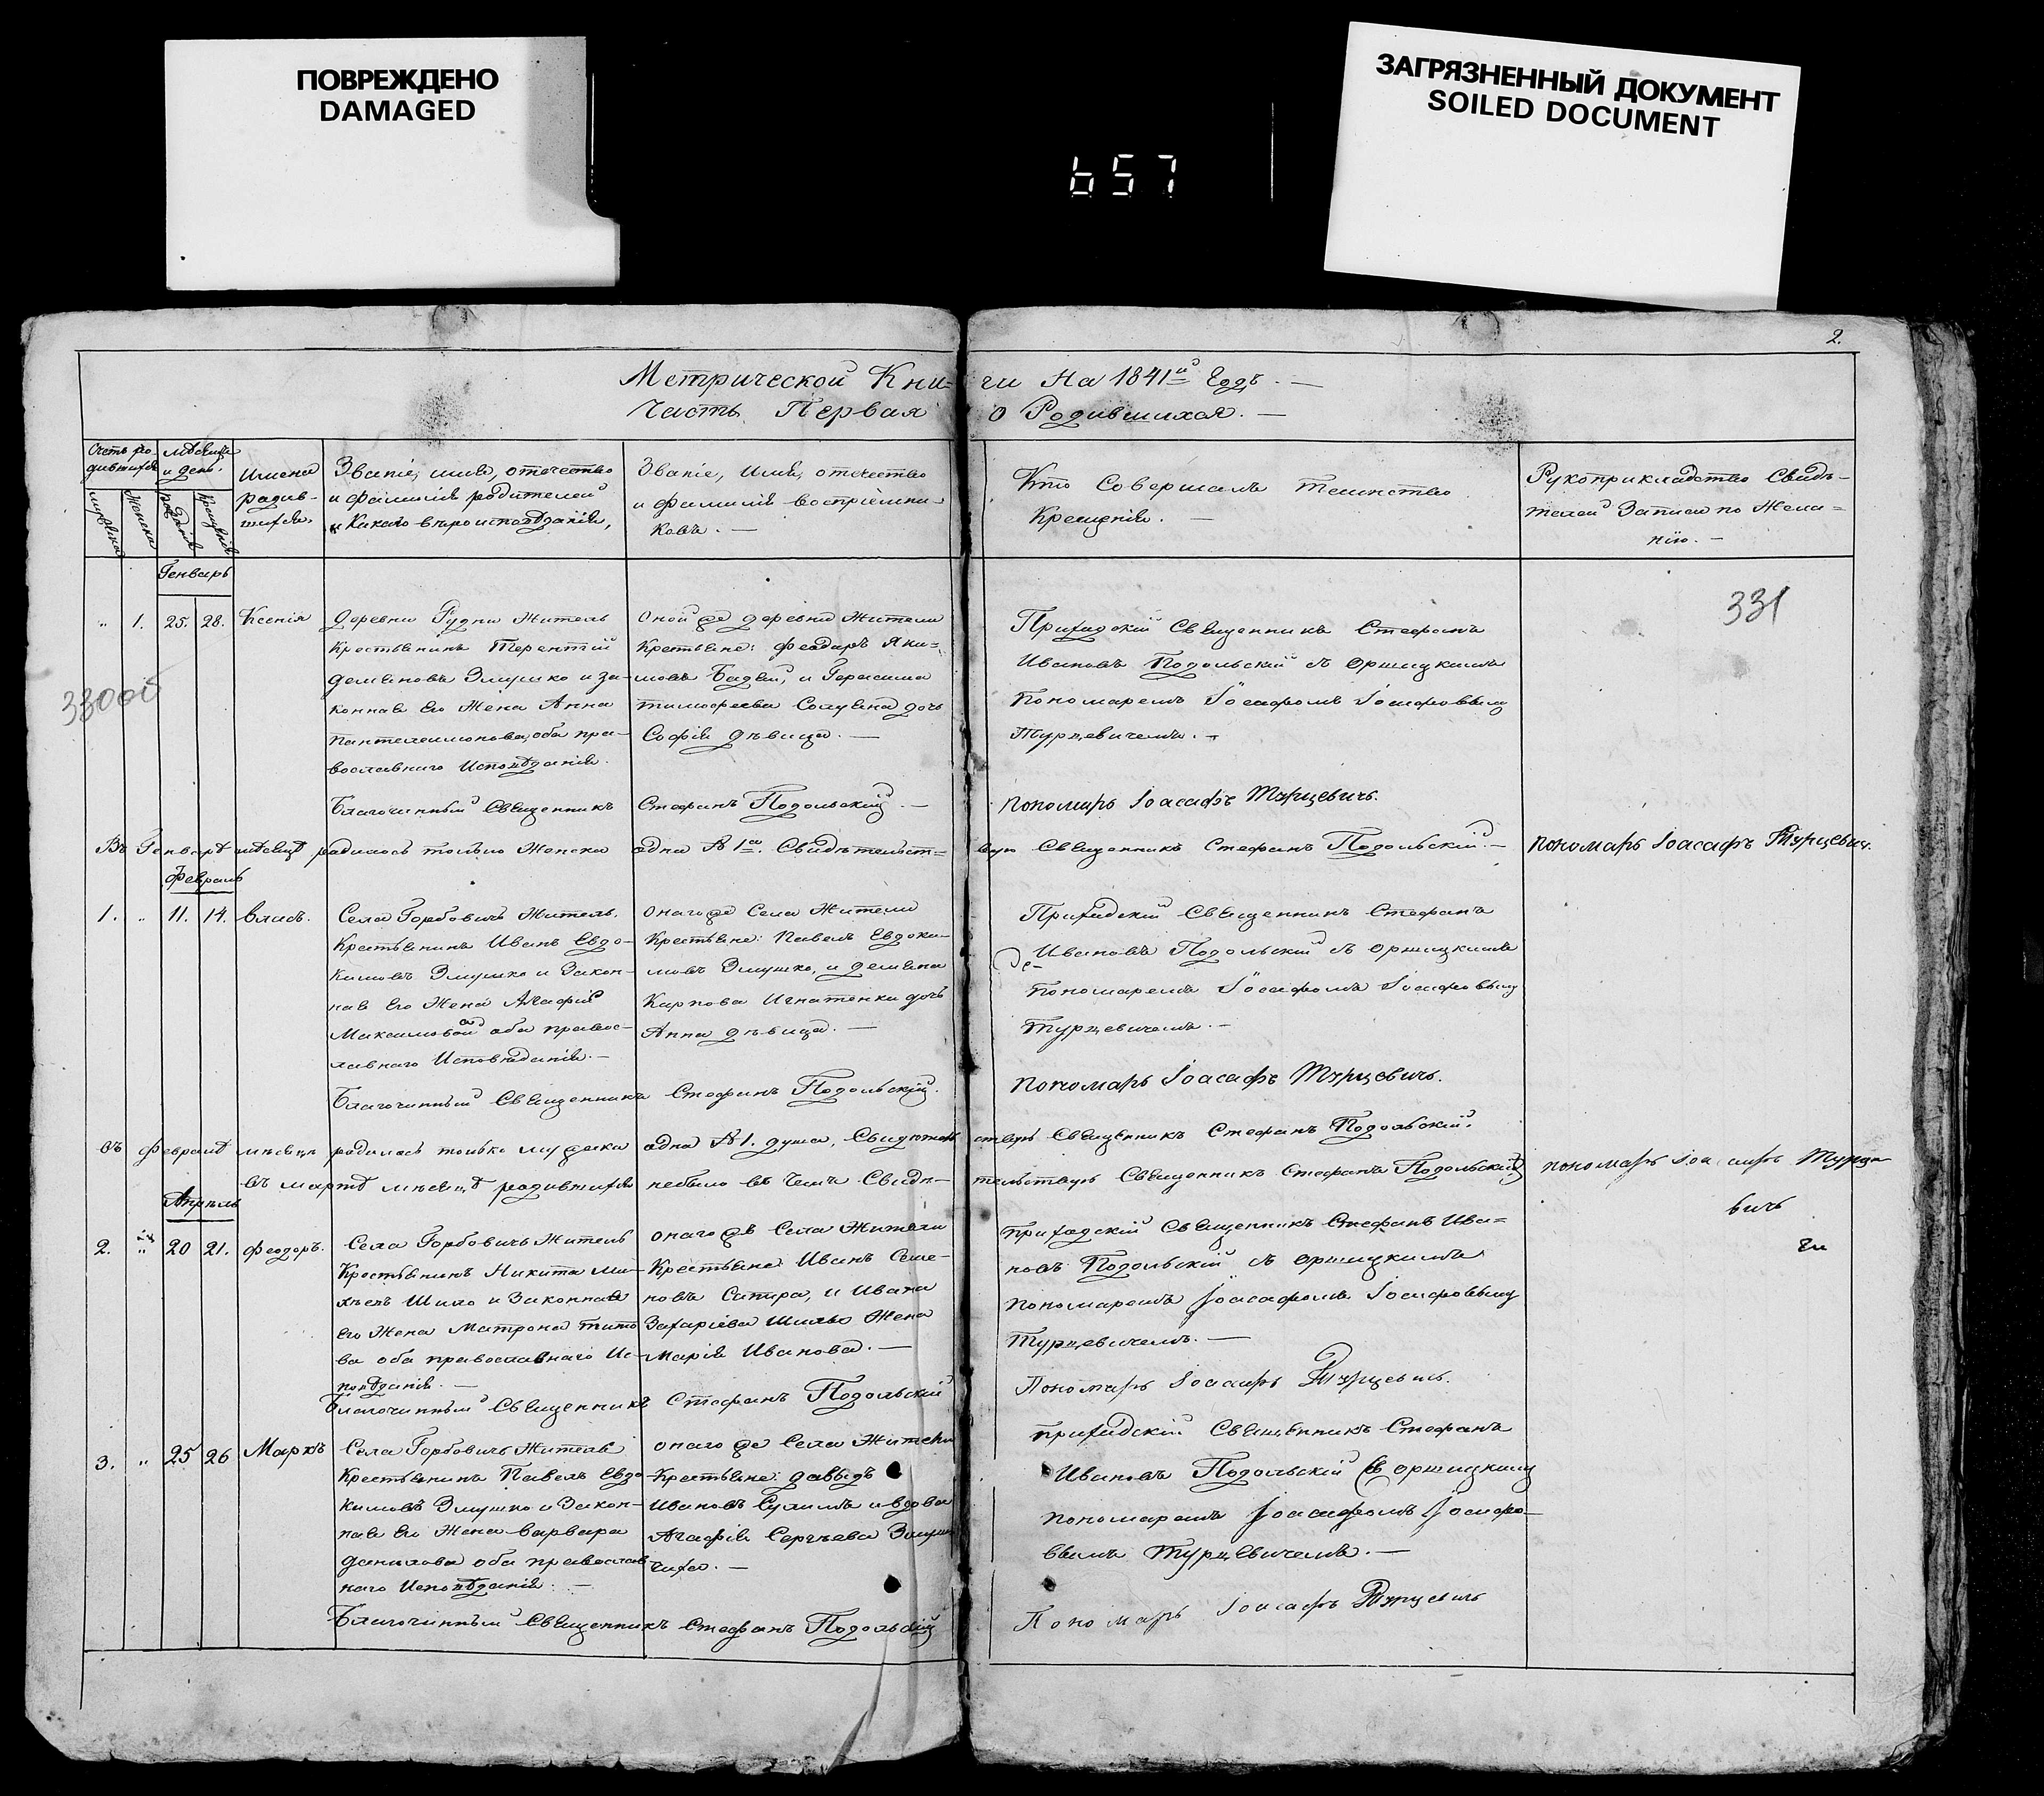 ПОВРЕЖДЕНО
DAMAGED
ЗАГРЯЗНЕННЫЙ ДОКУМЕНТ
SOILED DOCUMENT
657
2.
Метрической Кни- ги На 1841й Годъ. —
Часть Первая о Родившихся. —
Счетъ ро-
дившихся
мужеска
женска
мѣсяцъ
и день.
рожденія
крещенія
Имена
родив-
шихся.
Званіе, имя, отечество
и фамилія родителей
и Какого вѣроисповѣданія,
Званіе, Имя, отечество
и фамилія воспріемни-
ковъ. —
Кто Совершалъ таинство
Крещенія. —
Рукоприкладство Свидѣ-
телей Записи по Жела-
нію. —
Генварь
„ 1. 25. 28. Ксенія
Деревни Рудни Житель
Крестьянинъ Терентій
Демяновъ Змушко и за-
конная Его Жена Анна
Пантелеимонова, оба пра-
вославнаго Исповѣданія.
Оной же деревни Жители
Крестьяне: Феодоръ Яки-
мовъ Бадей, и Герасима
Тимофеева дочь
Софія дѣвица. —
Приходскій Священникъ Стефанъ
Ивановъ Подольскій съ Оршицкимъ
Пономаремъ Іосафомъ Іосифовымъ
Турцевичемъ. —
331
Благочинный Священникъ Стефанъ Подольскій. —
Пономарь Іоасафъ Турцевичъ.
Въ Генварѣ мѣсяцѣ родилось только Женска одна №1я. Свидѣтельст=
вую Священникъ Стефанъ Подольскій. —
Пономарь Іоасафъ Турцевич.
Февраль
1. „ 11. 14. Власъ.
Села Горбовичь Житель,
Крестьянинъ Иванъ Евдо-
кимовъ Змушко и Закон-
ная Его Жена Агафія
Максимова оба правос-
лавнаго Исповѣданія. —
Онаго же Села Жители
Крестьяне: Павелъ Евдоки-
мовъ Змушко, и Демьяна
Карпова Игнатенки дочь
Анна дѣвица. —
Приходскій Священникъ Стефанъ
Ивановъ Подольскій съ Оршицкимъ
Пономаремъ Іосафомъ Іосифовымъ
Турцевичемъ. —
Благочинный Священникъ Стефанъ Подольскій.
Пономарь Іоасафъ Турцевичъ.
Въ Февралѣ мѣсяцѣ родилась только мужска одна №1. душа, Свидѣтель
ствую Священникъ Стефанъ Подольскій.
Въ мартѣ мѣсяцѣ родившихся небыло въ Чемъ Свидѣ-
тельствую Священникъ Стефанъ Подольскій
Пономарь Іоасафъ Турце
вичъ
Апрѣль
2. „ 20 21. Феодоръ.
Села Горбовичь Житель
Крестьянинъ Никита Ми-
хѣевъ Шило и Законная
Его Жена Матрона Тито
ва оба православнаго Ис-
повѣданія. —
Онаго же Села Жители
Крестьяне: Иванъ Семе-
новъ Сапира, и Ивана
Захаріева Шилы Жена
Марія Иванова. —
Приходскій Священникъ Стефанъ Ива=
новъ Подольскій съ Оршицкимъ
Пономаремъ Іоасафомъ Іосифовымъ
Турцевичемъ. —
Благочинный Священникъ Стефанъ Подольскій
Пономарь Іоасафъ Турцевичъ.
3. „ 25 26 Маркъ
Села Горбовичь Житель
Крестьянинъ Павелъ Евдо-
кимовъ Змушко и Закон-
ная Его Жена Варвара
Данилова оба православ-
наго Исповѣданія. —
Онаго же Села Жители
Крестьяне: Давыдъ
Ивановъ Сулимъ и вдова
Агафія Сергѣева Змуш
чиха. —
Приходскій Священникъ Стефанъ
Ивановъ Подольскій съ Оршицкимъ
Пономаремъ Іоасафомъ Іосифо-
вымъ Турцевичемъ. —
Благочинный Священникъ Стефанъ Подольскій
Пономарь Іоасафъ Турцевичъ